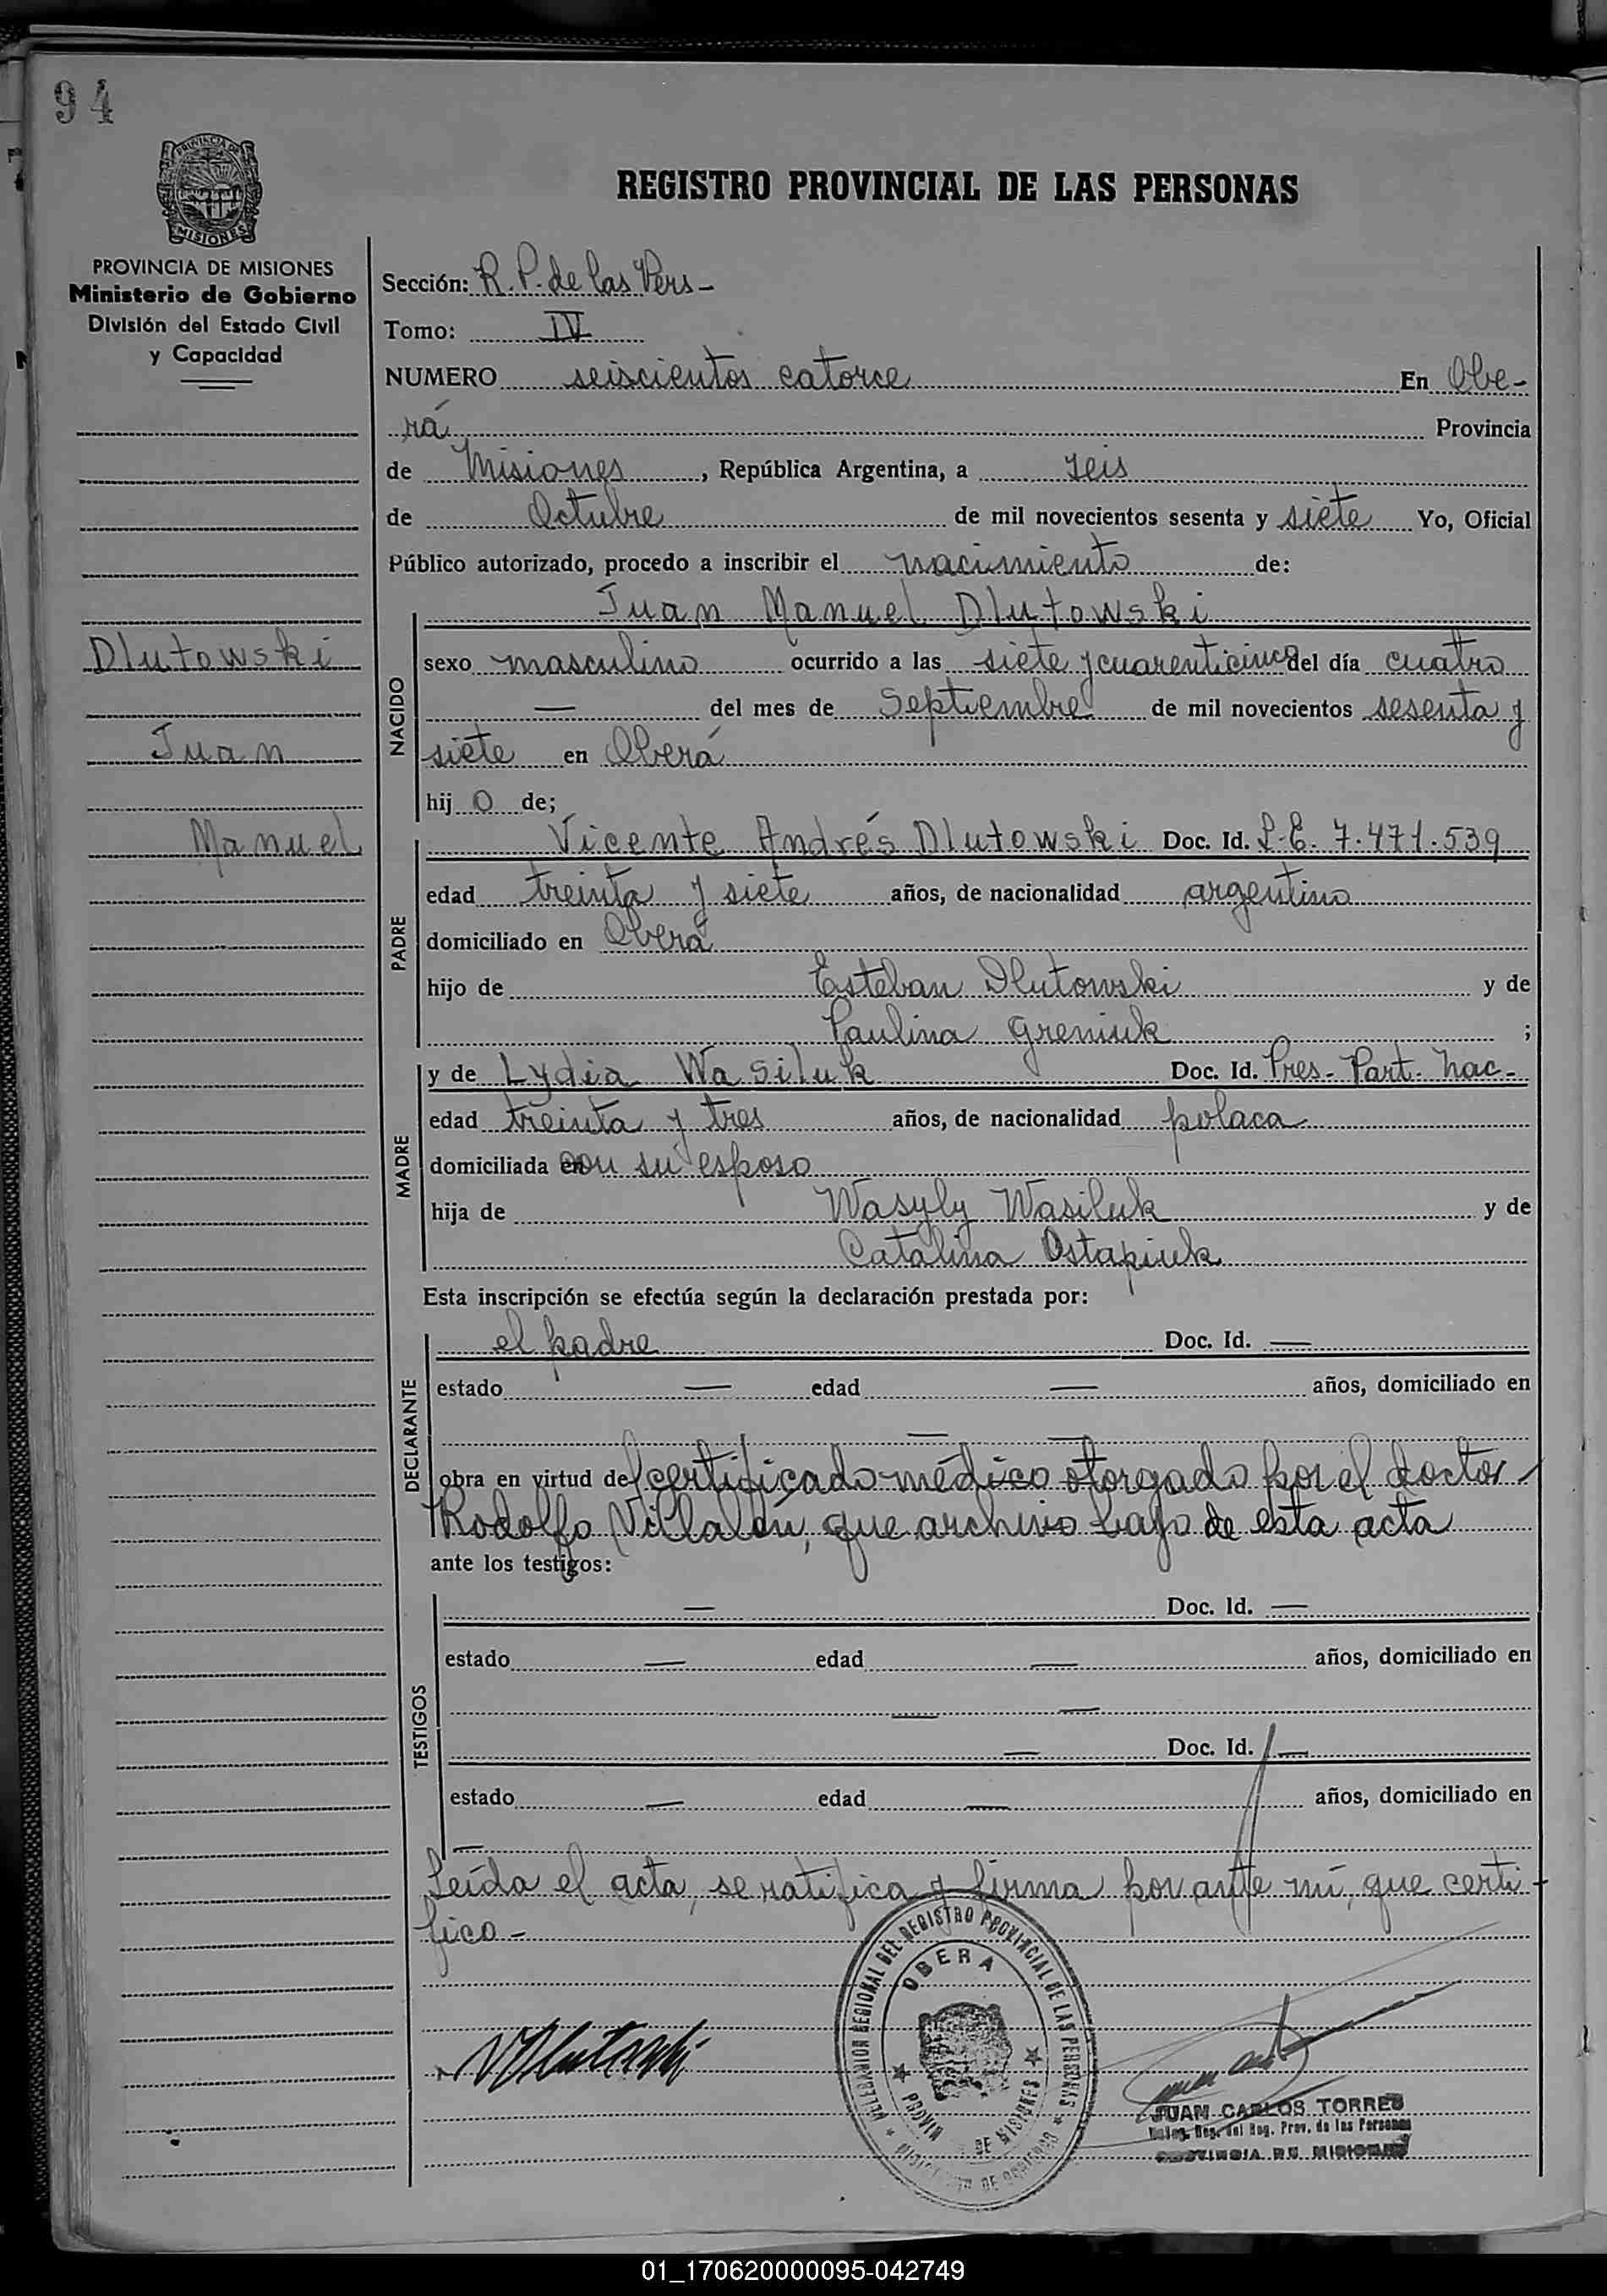 94
PROVINCIA DE
MISIONES
PROVINCIA DE MISIONES
Ministerio de Gobierno
División del Estado Civil
y Capacidad
Dlutowski
Juan
Manuel
REGISTRO PROVINCIAL DE LAS PERSONAS
Sección: R. P. de las Pers-
Tomo: IV
NUMERO seiscientos catorce En Obe-
rá Provincia
de Misiones, República Argentina, a seis
de Octubre de mil novecientos sesenta y siete Yo, Oficial
Público autorizado, procedo a inscribir el nacimiento de:
Juan Manuel Dlutowski
NACIDO
sexo masculino ocurrido a las siete y cuarenticinco del día cuatro
— del mes de Septiembre de mil novecientos sesenta y
siete en Oberá
hij o de;
PADRE
Vicente Andrés Dlutowski Doc. Id. L.E. 7.471.539
edad treinta y siete años, de nacionalidad argentino
domiciliado en Oberá
hijo de Esteban Dlutowski y de
Paulina Greniuk ;
MADRE
y de Lydia Wasiluk Doc. Id. Pres- Part. nac-
edad treinta y tres años, de nacionalidad polaca
domiciliada en con su esposo
hija de Wasyly Wasiluk y de
Catalina Ostapiuk
Esta inscripción se efectúa según la declaración prestada por:
DECLARANTE
el padre Doc. Id. —
estado — edad — años, domiciliado en
— —
obra en virtud del certificado médico otorgado por el doctor
Rodolfo Villalón, que archivo bajo de esta acta
ante los testigos:
TESTIGOS
— Doc. Id. —
estado — edad — años, domiciliado en
— —
— Doc. Id. —
estado — edad — años, domiciliado en
—
Leída el acta, se ratifica y firma por ante mí, que certi-
fico-
DELEGACION REGIONAL DEL REGISTRO PROVINCIAL DE LAS PERSONAS
OBERA
PROVIN DE MISIONES
VDlutowski
JUAN CARLOS TORRES
Deleg. Reg. del Reg. Prov. de las Personas
PROVINCIA DE MISIONES
01_170620000095-042749